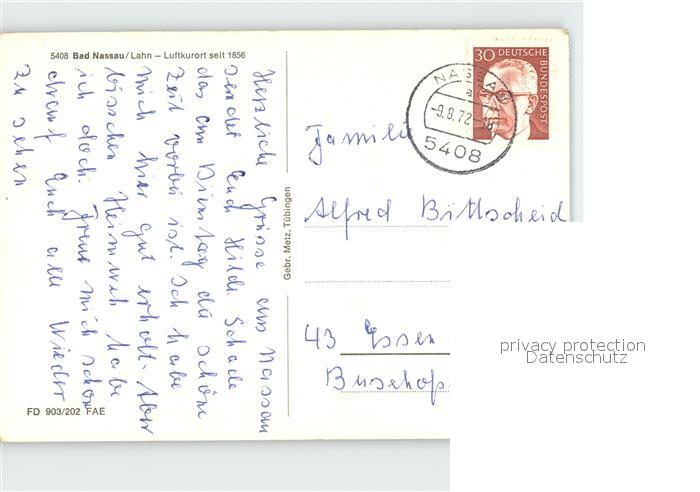 5408 Bad Nassau/Lahn – Luftkurort seit 1856
Herzliche Grüsse aus Nassau
sendet Euch Hilde. Schade
das am Dienstag die schöne
Zeit vorbei ist. Ich habe
mich hier gut erholt. Aber
bisschen Heimweh habe
ich doch. Freue mich schon
drauf Euch alle Wieder
zu sehen
FD 903/202 FAE
Gebr. Metz, Tübingen
30 DEUTSCHE
BUNDESPOST
NASSAU
a
-9.8.72-18
5408
Familie
Alfred Bittscheid
43 Essen
privacy protection
Datenschutz